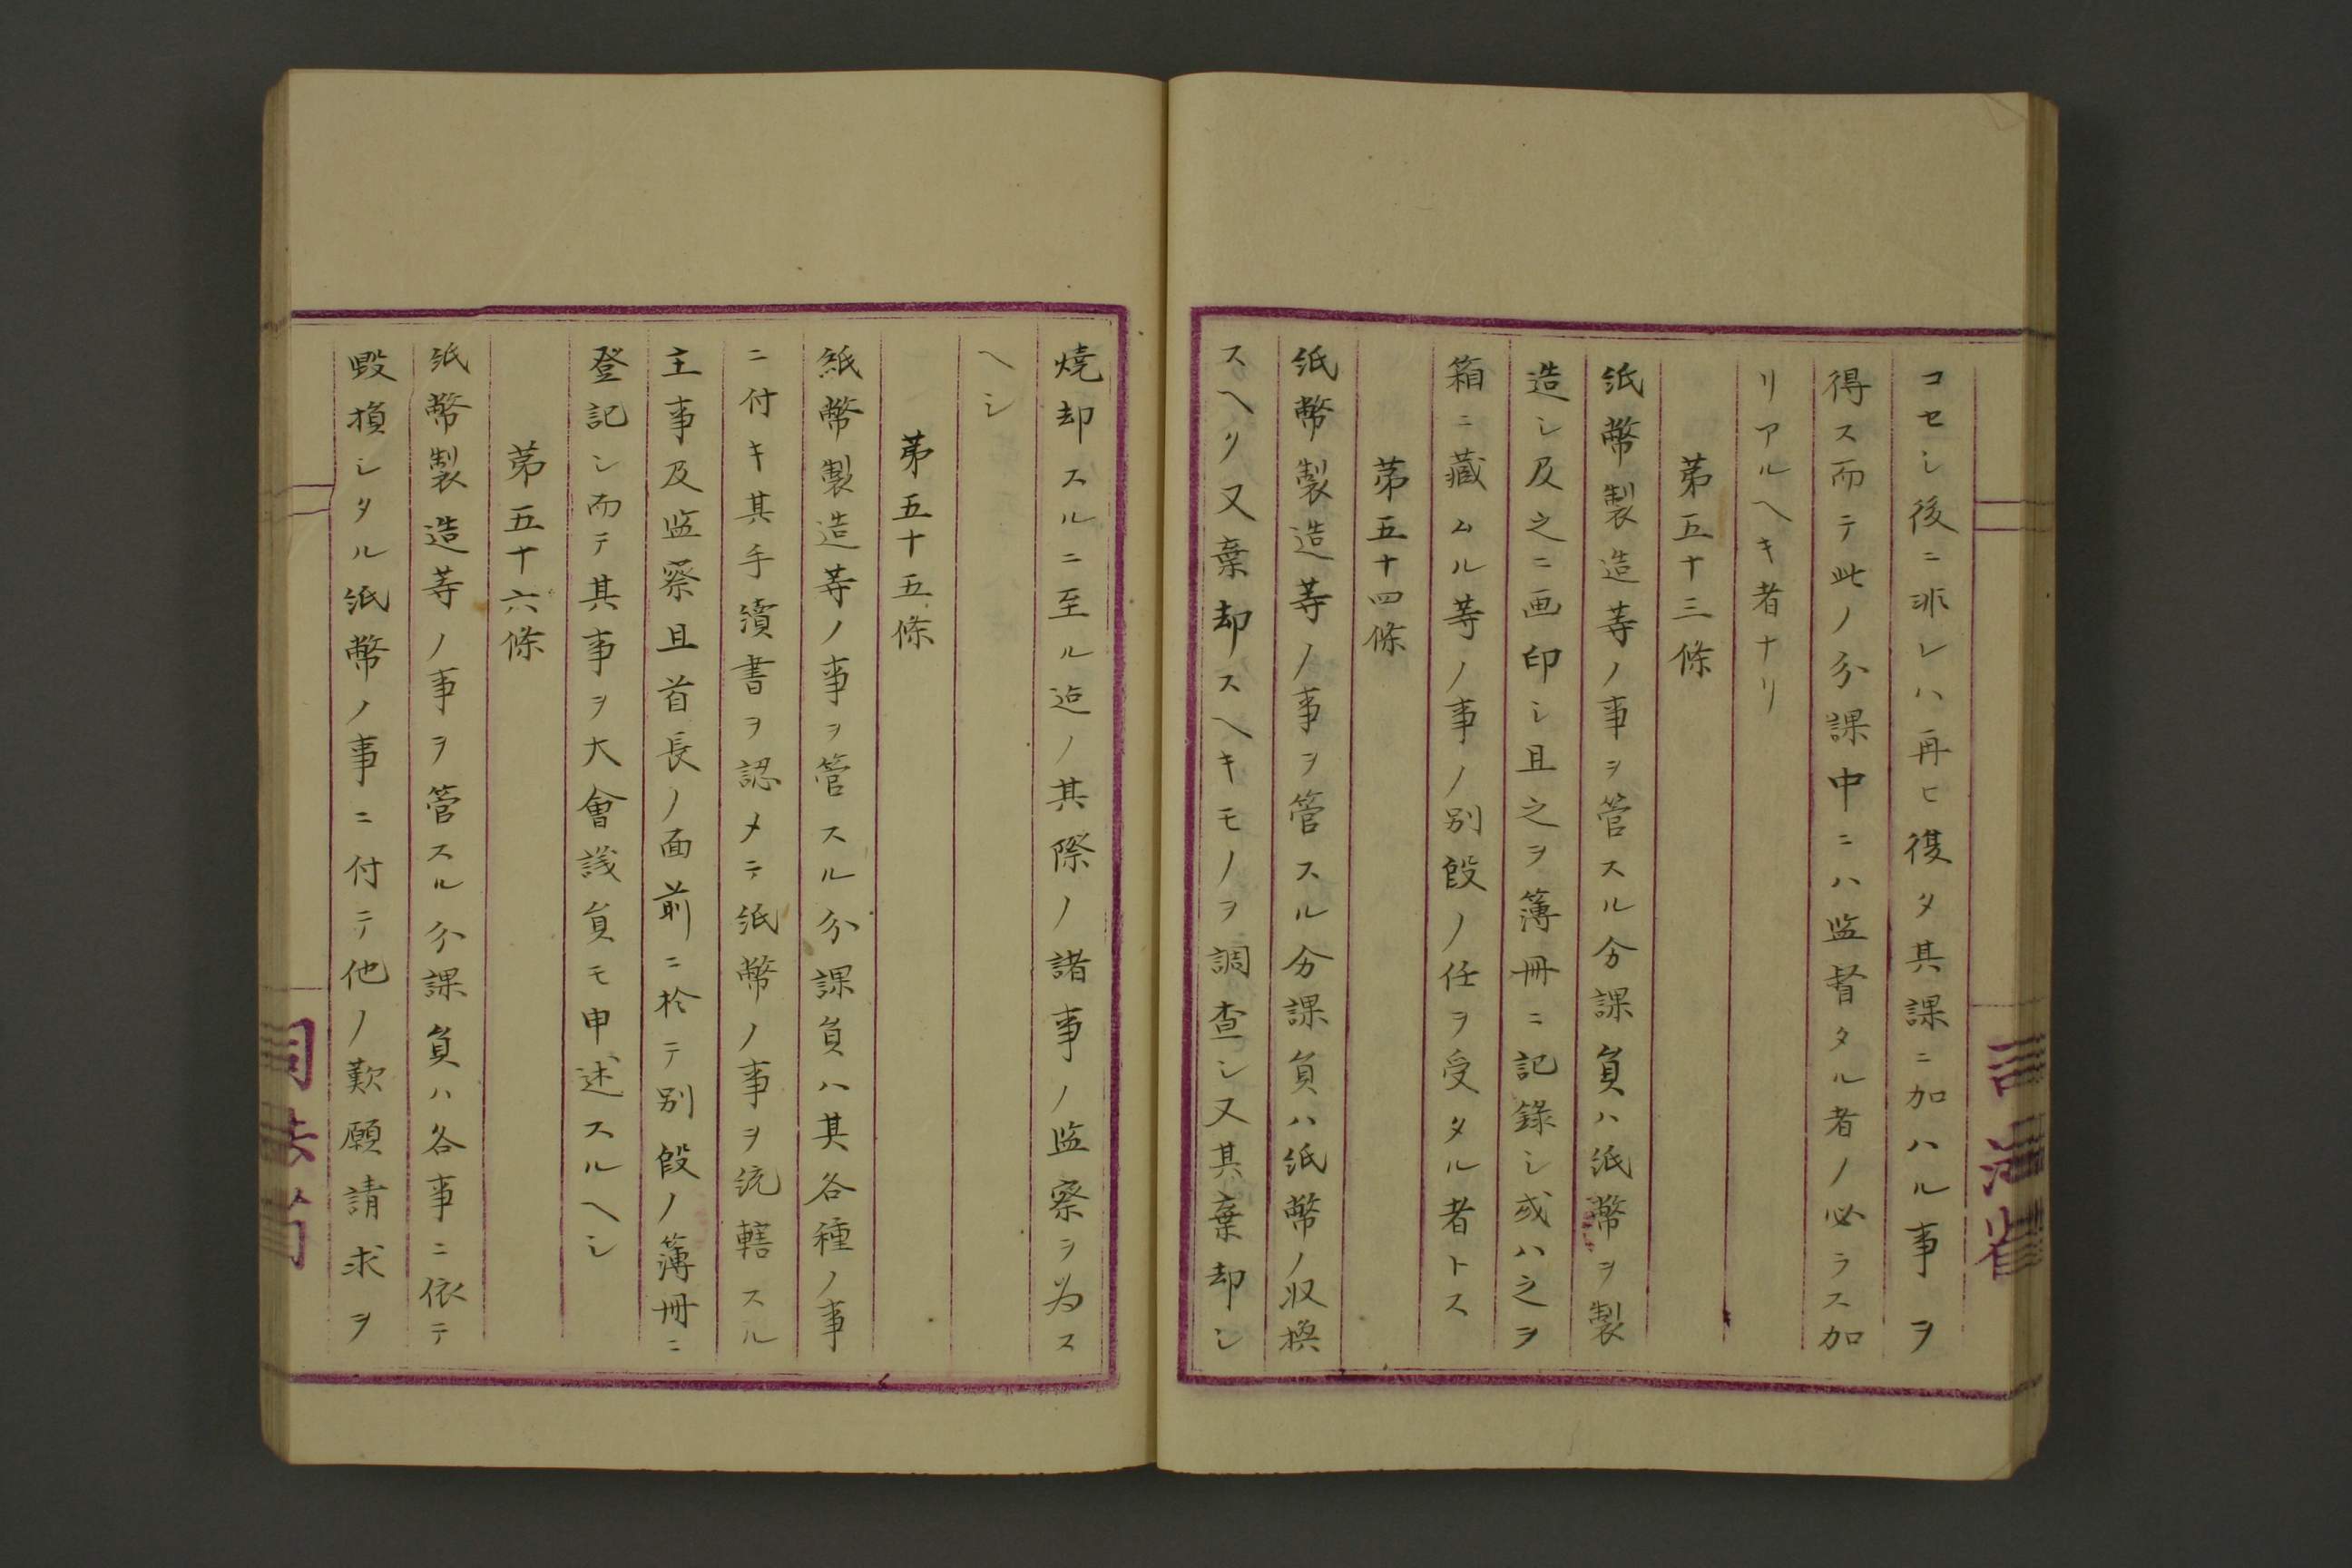 コセシ後ニ非レハ再ヒ復タ其課ニ加ハル事ヲ
得ス而テ此ノ分課中ニハ監督タル者ノ必ラス加
リアルヘキ者ナリ
第五十三條
紙幣製造等ノ事ヲ管スル分課員ハ紙幣ヲ製
造シ及之ニ画印シ且之ヲ簿冊ニ記録シ或ハ之ヲ
箱ニ藏ムル等ノ事ノ別段ノ任ヲ受タル者トス
第五十四條
紙幣製造等ノ事ヲ管スル分課員ハ紙幣ノ収換
スヘク又棄却スヘキモノヲ調査シ又其棄却シ
焼却スルニ至ル迄ノ其際ノ諸事ノ監察ヲ為ス
ヘシ
第五十五條
紙幣製造等ノ事ヲ管スル分課員ハ其各種ノ事
ニ付キ其手續書ヲ認メテ紙幣ノ事ヲ統轄スル
主事及監察且首長ノ面前ニ於テ別段ノ簿冊ニ
登記シ而テ其事ヲ大會議員モ申述スルヘシ
第五十六條
紙幣製造等ノ事ヲ管スル分課員ハ各事ニ依テ
毀損シタル紙幣ノ事ニ付テ他ノ歎願請求ヲ